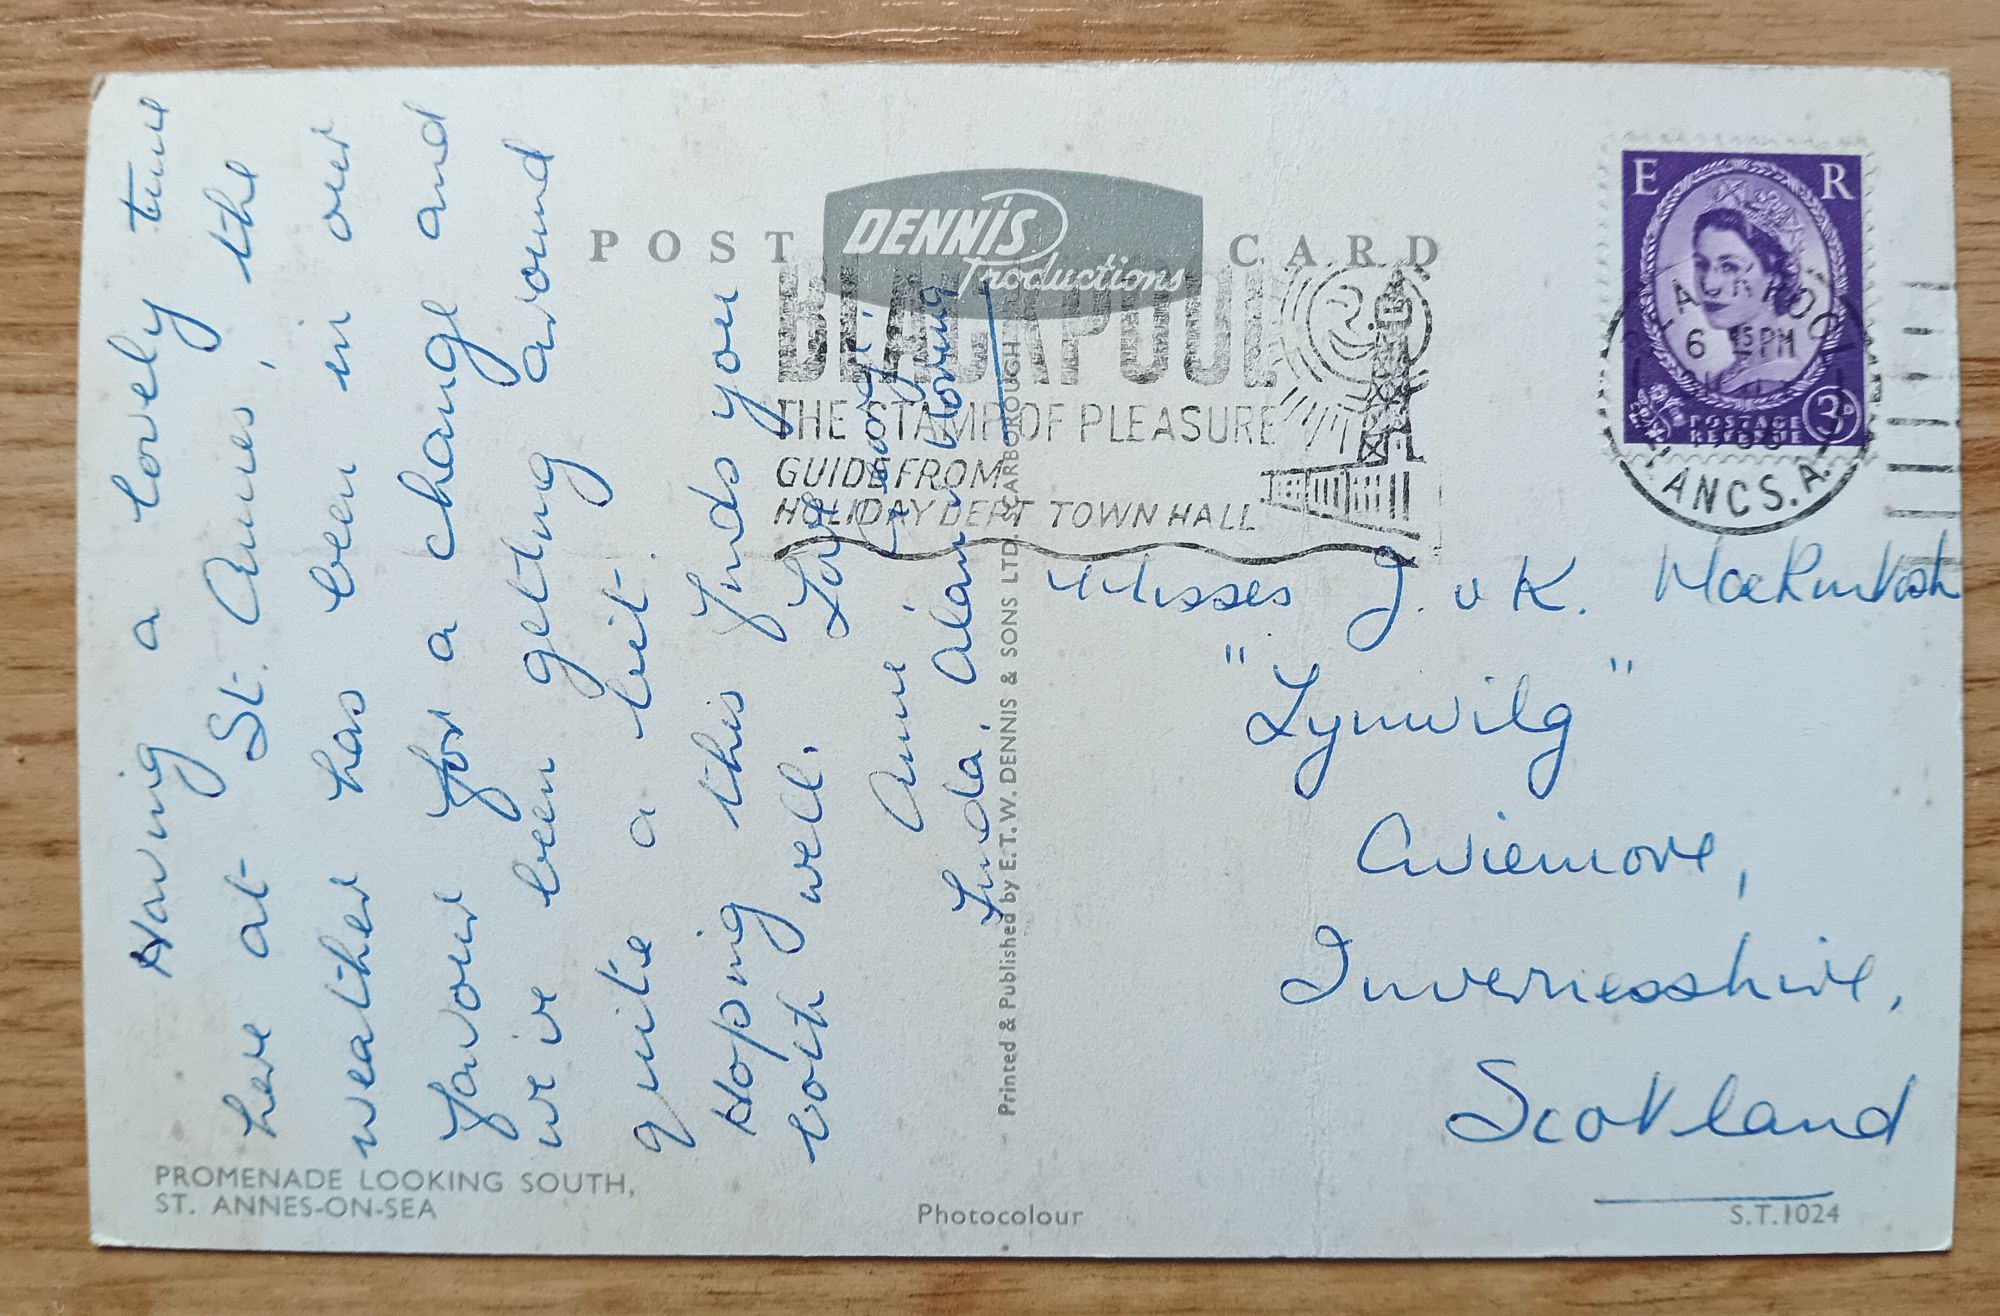 POST CARD
DENNIS
Productions
BLACKPOOL
THE STAMP OF PLEASURE
GUIDE FROM
HOLIDAY DEPT TOWN HALL
E R
POSTAGE
REVENUE
3D
6 15 PM
LANCS. A.
Having a lovely time
here at St. Annes, the
weather has been in our
favour for a change and
we've been getting around
quite a bit.
Hoping this finds you
both well. Love
Anne,
Linda, Alan
Misses J. & K. MacKintosh
"Lynwilg"
Aviemore,
Invernesshire,
Scotland
Printed & Published by E.T.W. DENNIS & SONS LTD. SCARBOROUGH
PROMENADE LOOKING SOUTH,
ST. ANNES-ON-SEA
Photocolour
S.T.1024